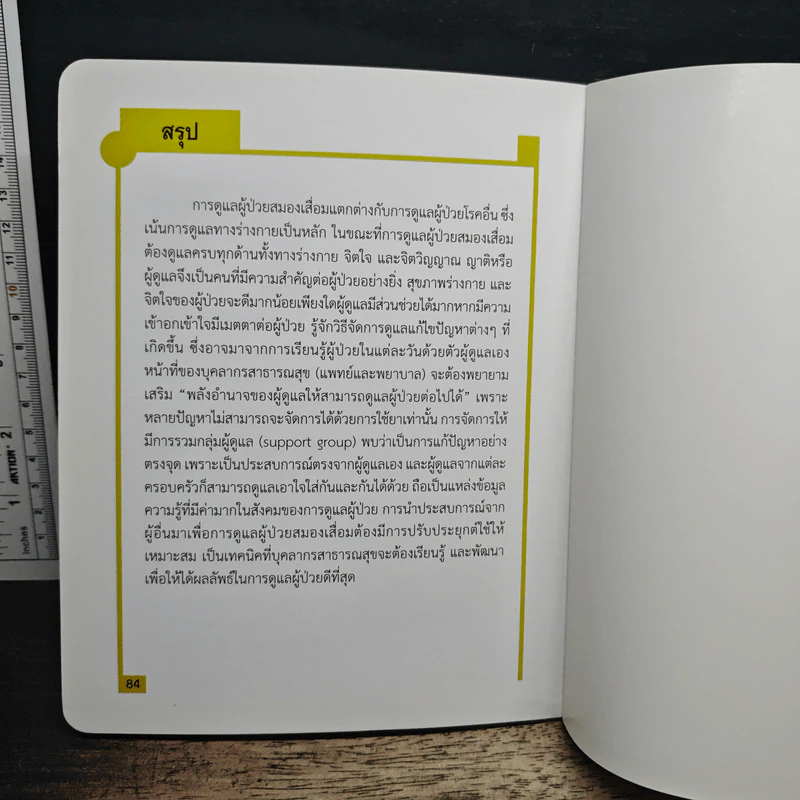 สรุป
การดูแลผู้ป่วยสมองเสื่อมแตกต่างกับการดูแลผู้ป่วยโรคอื่น ซึ่ง
เน้นการดูแลทางร่างกายเป็นหลัก ในขณะที่การดูแลผู้ป่วยสมองเสื่อม
ต้องดูแลครบทุกด้านทั้งทางร่างกาย จิตใจ และจิตวิญญาณ ญาติหรือ
ผู้ดูแลจึงเป็นคนที่มีความสำคัญต่อผู้ป่วยอย่างยิ่ง สุขภาพร่างกาย และ
จิตใจของผู้ป่วยจะดีมากน้อยเพียงใดผู้ดูแลมีส่วนช่วยได้มากหากมีความ
เข้าอกเข้าใจมีเมตตาต่อผู้ป่วย รู้จักวิธีจัดการดูแลแก้ไขปัญหาต่างๆ ที่
เกิดขึ้น ซึ่งอาจมาจากการเรียนรู้ผู้ป่วยในแต่ละวันด้วยตัวผู้ดูแลเอง
หน้าที่ของบุคลากรสาธารณสุข (แพทย์และพยาบาล) จะต้องพยายาม
เสริม “พลังอำนาจของผู้ดูแลให้สามารถดูแลผู้ป่วยต่อไปได้” เพราะ
หลายปัญหาไม่สามารถจะจัดการได้ด้วยการใช้ยาเท่านั้น การจัดการให้
มีการรวมกลุ่มผู้ดูแล (support group) พบว่าเป็นการแก้ปัญหาอย่าง
ตรงจุด เพราะเป็นประสบการณ์ตรงจากผู้ดูแลเอง และผู้ดูแลจากแต่ละ
ครอบครัวก็สามารถดูแลเอาใจใส่กันและกันได้ด้วย ถือเป็นแหล่งข้อมูล
ความรู้ที่มีค่ามากในสังคมของการดูแลผู้ป่วย การนำประสบการณ์จาก
ผู้อื่นมาเพื่อการดูแลผู้ป่วยสมองเสื่อมต้องมีการปรับประยุกต์ใช้ให้
เหมาะสม เป็นเทคนิคที่บุคลากรสาธารณสุขจะต้องเรียนรู้ และพัฒนา
เพื่อให้ได้ผลลัพธ์ในการดูแลผู้ป่วยดีที่สุด
84